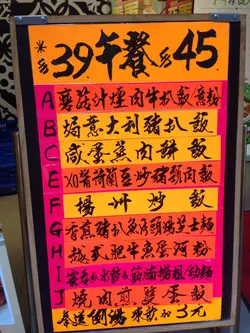 *$39午餐$45
A 蘑菇汁煙肉牛扒飯意粉
B 焗意大利豬扒飯
C 咸蛋蒸肉餅飯
E XO醬荷蘭豆炒豬頸肉飯
F 楊州炒飯
G 香煎豬扒魚
H 越式肥牛
I
J 燒肉煎雙蛋飯
餐送例湯凍飲加3元